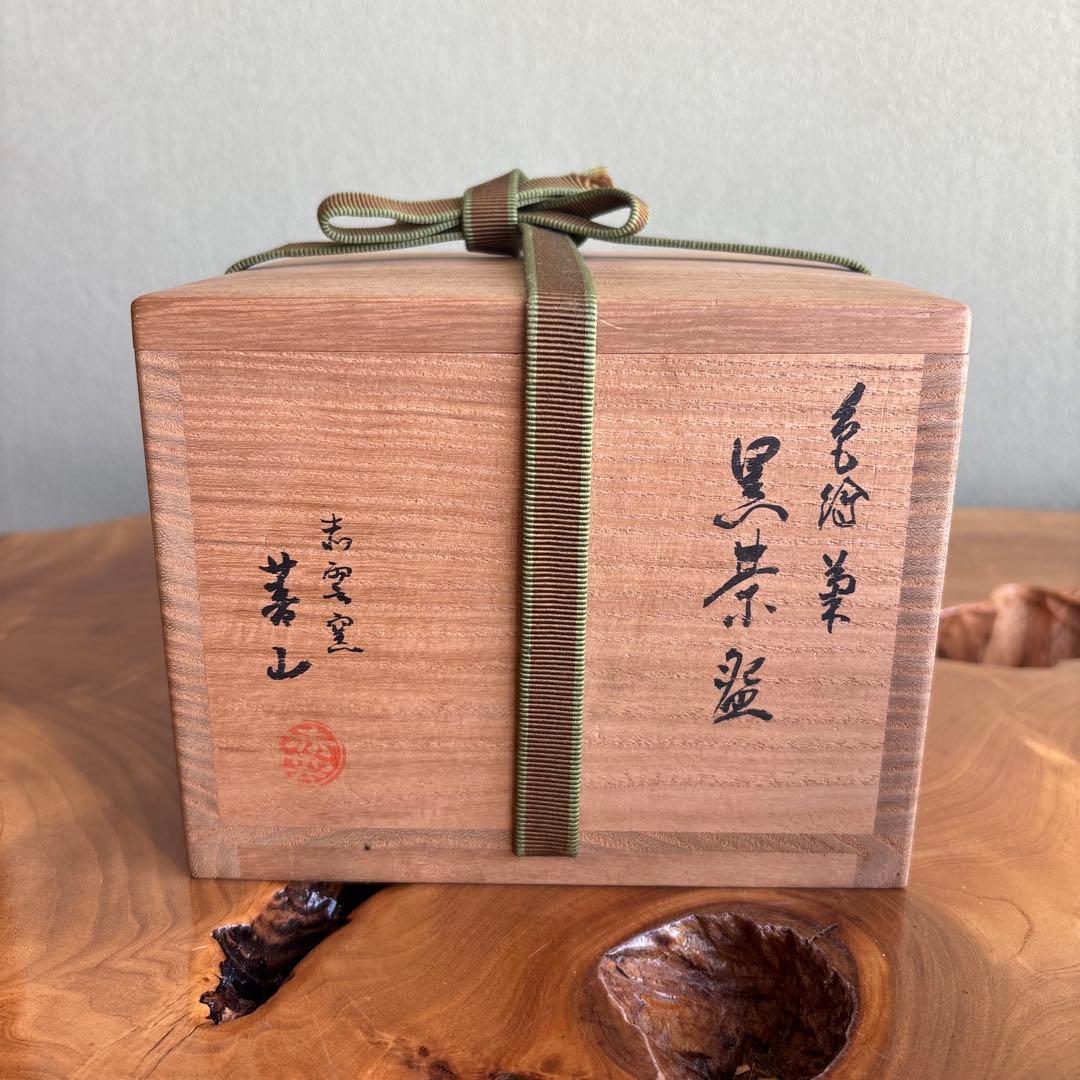 色絵 菊
黒茶盌
赤雲窯
善山